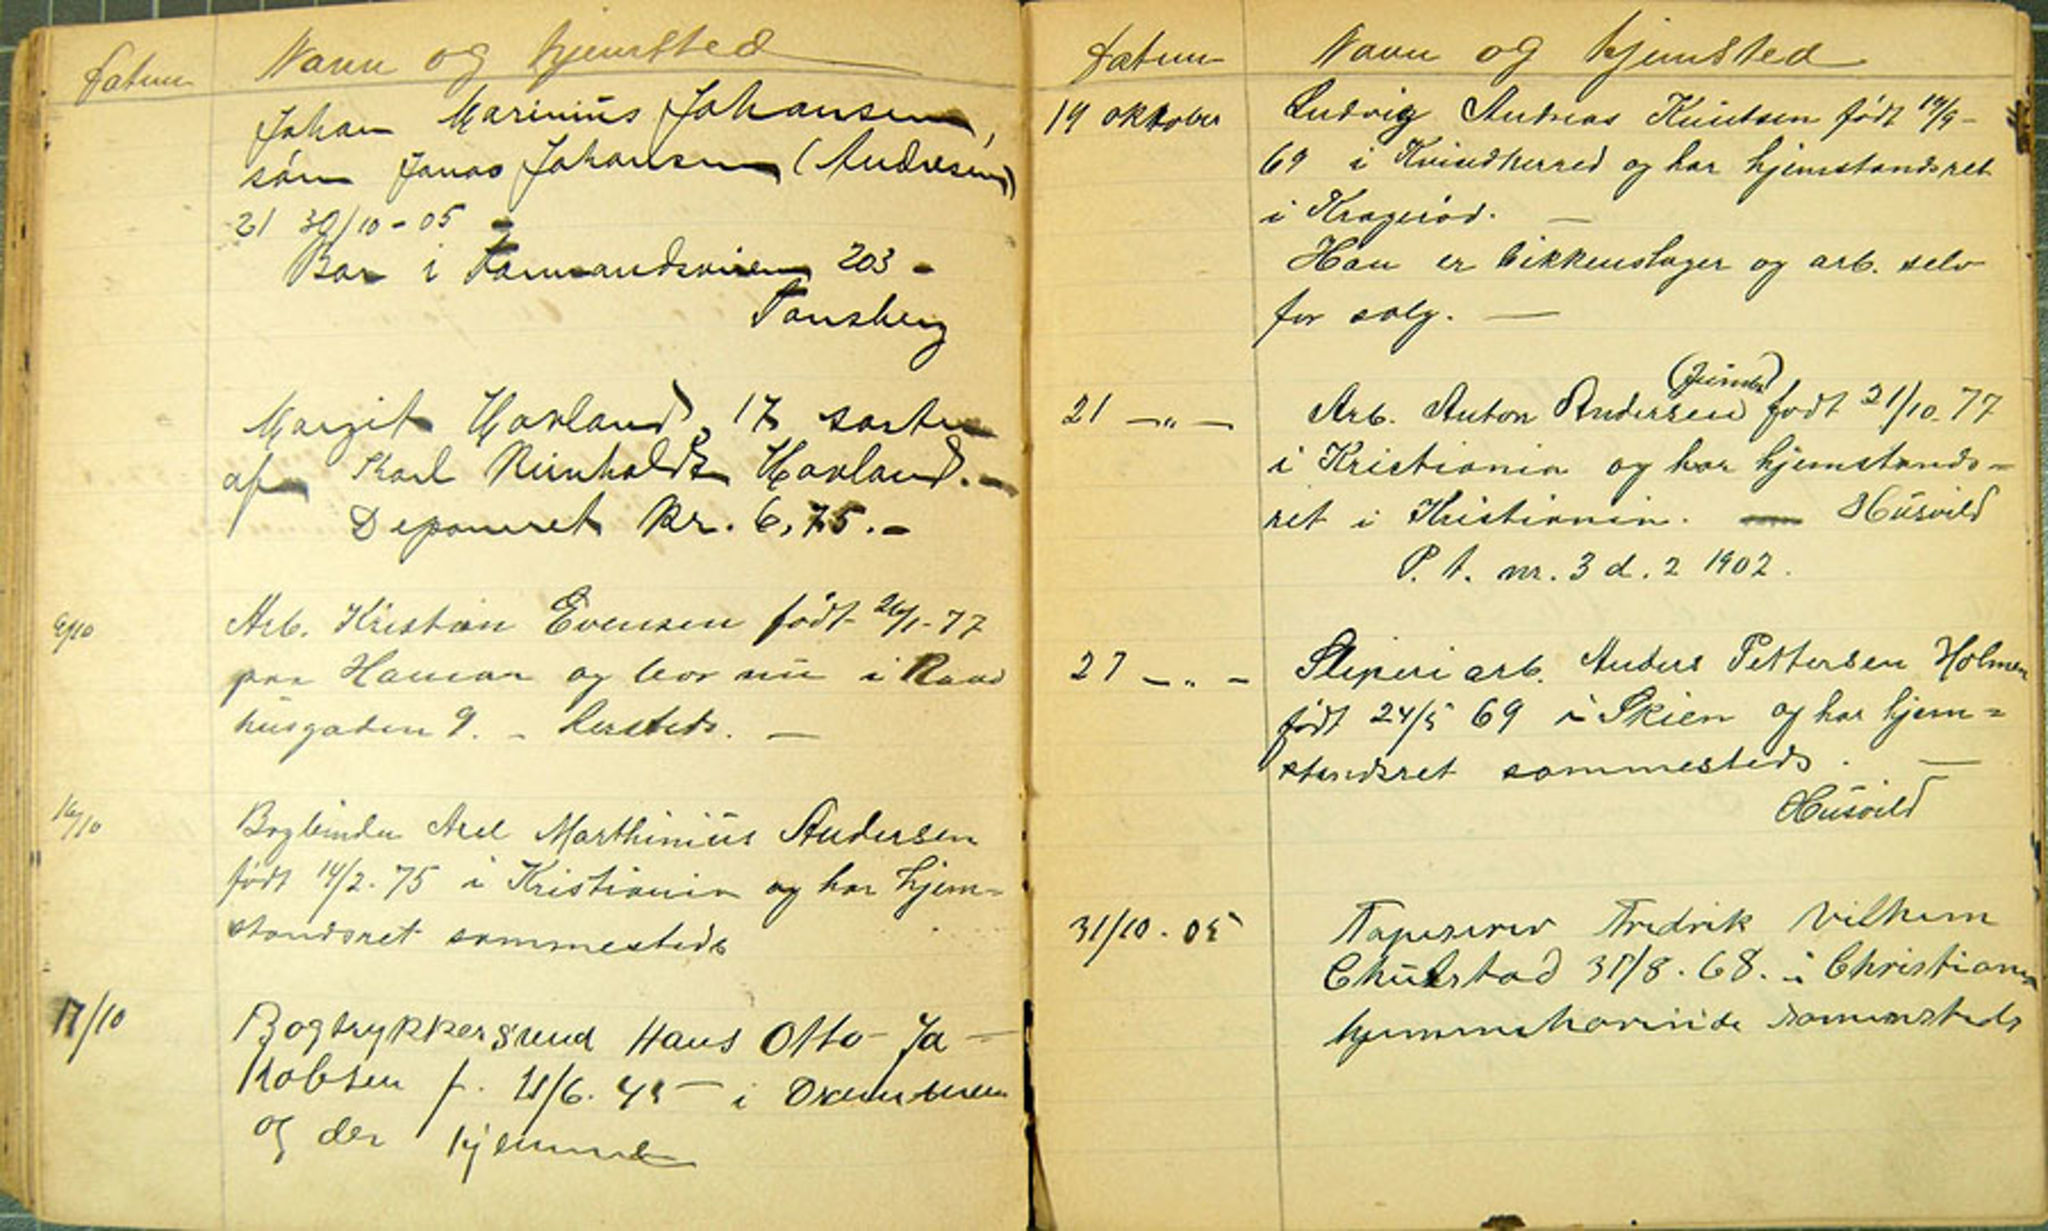 Datum Navn og hjemsted
Johan Marinius Johansen,
søn Jonas Johansen (Andresen)
21 30/10 - 05 -
Bor i 203 -
Tønsberg
Margit Hovland, 17, datter
af Karl Reinholdt Hovland. -
Deponeret kr. 6,75. -
9/10 Arb. Kristian Evensen født 26/1 - 77
paa Hamar og bor nu i Raad
husgaden 9. - hersteds. -
16/10 Bogbinder Axel Marthinius Andersen
født 14/2. 75 i Kristiania og har hjem=
standsret sammesteds
17/10 Bogtrykkersvend Hans Otto Ja-
kobsen f. i Drammen
og der hjemme
Datum Navn og hjemsted
19 oktober Ludvig Andreas Knudsen født 14/9 -
69 i Kvindherred og har hjemstandsret
i Kragerød. -
Han er blikkenslager og arb. selv
for salg. -
(Jumbo)
21 -"- Arb. Anton Andersen født 21/10 - 77
i Kristiania og har hjemstands=
ret i Kristiania. Husvild
P. t. nr. 3 d. 2 1902.
27 -"- Sliperiarb. Anders Pettersen Holmen
født 24/5 69 i Skien og har hjem=
standsret sammesteds. -
Husvild
31/10 - 05 Tapeserer Fredrik Vilhem
31/8. 68. i Christiania
hjemmehørende sammesteds